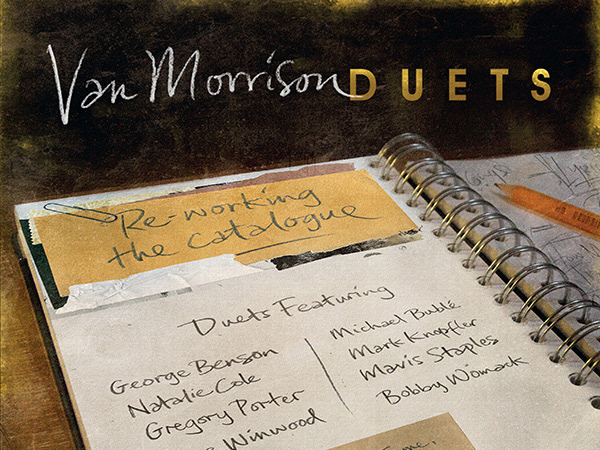 Van Morrison DUETS
Re-working
the catalogue
Duets Featuring
George Benson
Natalie Cole
Gregory Porter
Winwood
Michael Bublé
Mark Knopfler
Mavis Staples
Bobby Womack